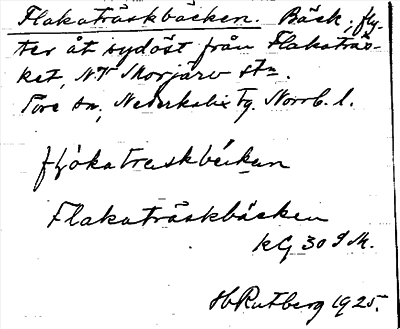 Flakaträskbäcken. Bäck, fly-
ter åt sydöst från Flakaträs-
ket, NV Morjärv stn.
Töre sn, Nederkalix tg. Norrb. l.
Flakaträskbäcken
KG 30 S M.
Rutberg 1925.